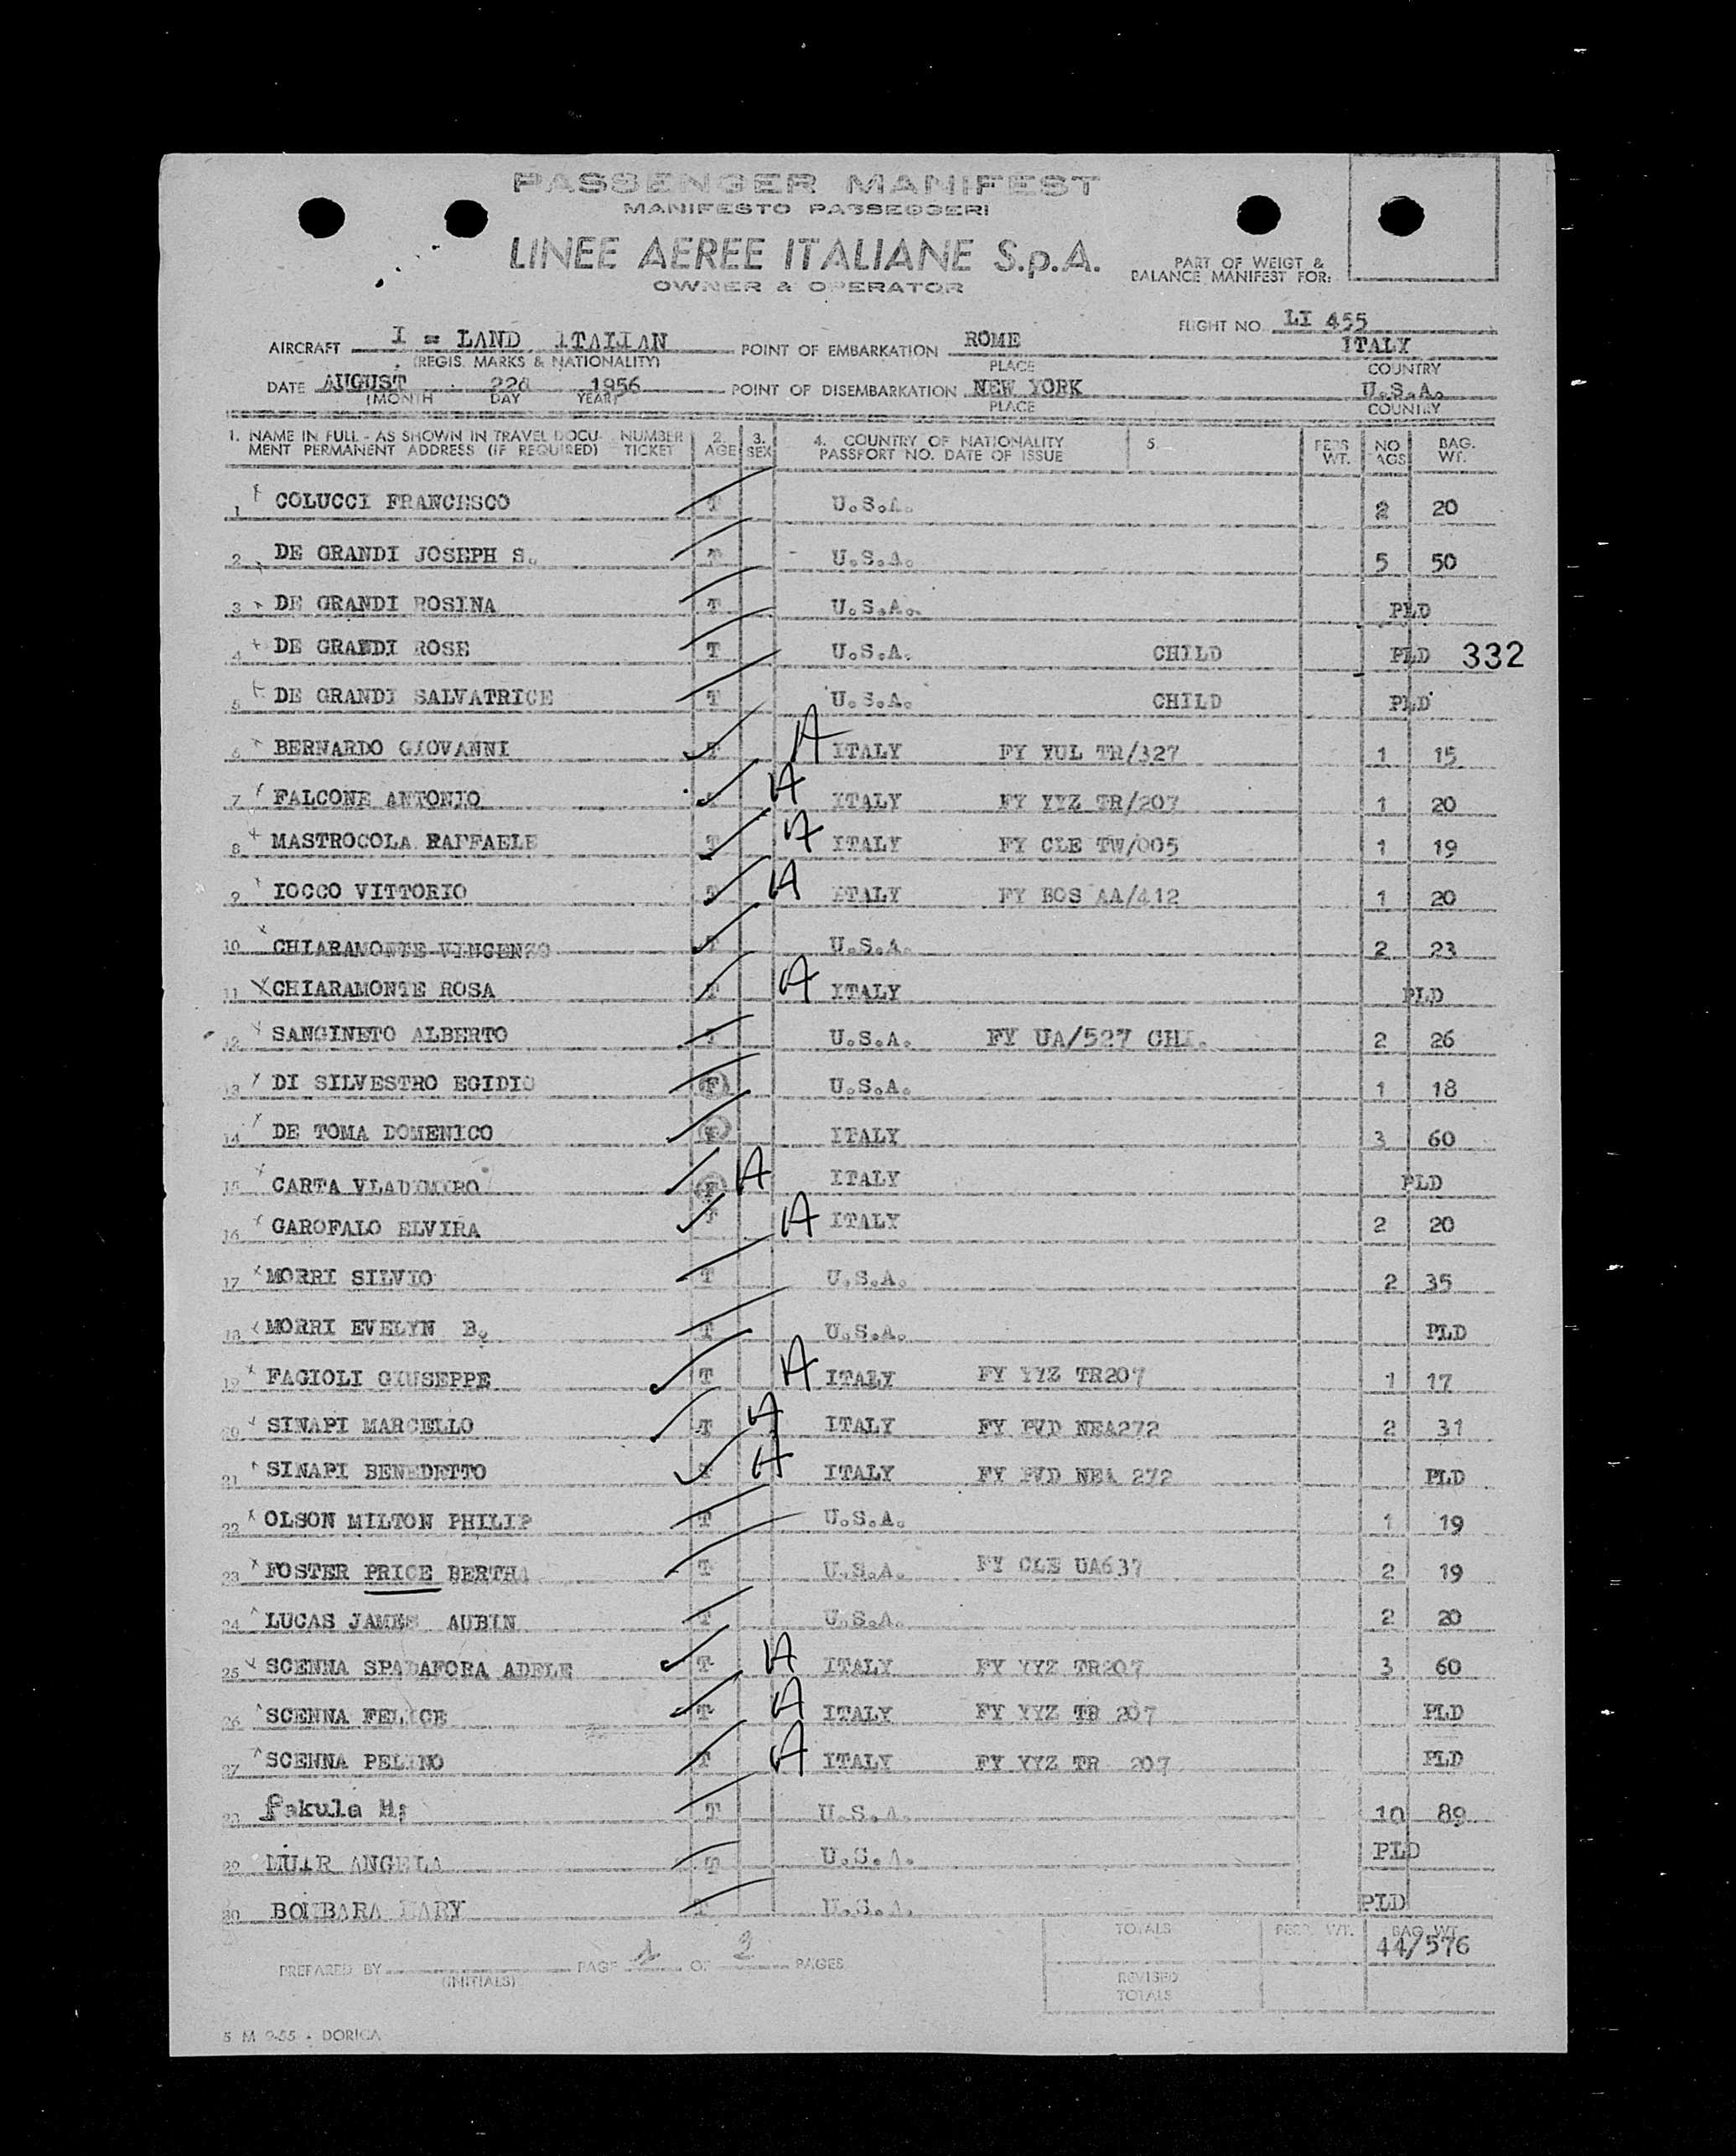 PASSENGER MANIFEST
MANIFESTO PASSEGGERI
LINEE AEREE ITALIANE S.p.A.
OWNER & OPERATOR
PART OF WEIGT &
BALANCE MANIFEST FOR:
FLIGHT NO. LI 455
AIRCRAFT I = LAND ITALIAN POINT OF EMBARKATION ROME ITALY
(REGIS. MARKS & NATIONALITY) PLACE COUNTRY
DATE AUGUST 22d 1956 POINT OF DISEMBARKATION NEW YORK U.S.A.
(MONTH DAY YEAR) PLACE COUNTRY
1. NAME IN FULL - AS SHOWN IN TRAVEL DOCU- NUMBER 2. 3. 4. COUNTRY OF NATIONALITY 5. PERS NO BAG.
MENT PERMANENT ADDRESS (IF REQUIRED) TICKET AGE SEX PASSPORT NO. DATE OF ISSUE WT. AGS WT.
1 COLUCCI FRANCESCO T U.S.A. 2 20
2 DE GRANDI JOSEPH S. T U.S.A. 5 50
3 DE GRANDI ROSINA T U.S.A. PLD
4 DE GRANDI ROSE T U.S.A. CHILD PLD 332
5 DE GRANDI SALVATRICE T U.S.A. CHILD PLD
6 BERNARDO GIOVANNI T A ITALY FY YUL TR/327 1 15
7 FALCONE ANTONIO T A ITALY FY YYZ TR/207 1 20
8 MASTROCOLA RAFFAELE T A ITALY FY CLE TW/005 1 19
9 IOCCO VITTORIO T A ITALY FY BOS AA/412 1 20
10 CHIARAMONTE VINCENZO T U.S.A. 2 23
11 CHIARAMONTE ROSA T A ITALY PLD
12 SANGINETO ALBERTO T U.S.A. FY UA/527 CHI. 2 26
13 DI SILVESTRO EGIDIO F U.S.A. 1 18
14 DE TOMA DOMENICO F ITALY 3 60
15 CARTA VLADIMIRO F A ITALY PLD
16 GAROFALO ELVIRA T A ITALY 2 20
17 MORRI SILVIO T U.S.A. 2 35
18 MORRI EVELYN B. T U.S.A. PLD
19 FAGIOLI GIUSEPPE T A ITALY FY YYZ TR207 1 17
20 SINAPI MARCELLO T A ITALY FY PVD NEA272 2 31
21 SINAPI BENEDETTO T A ITALY FY PVD NEA 272 PLD
22 OLSON MILTON PHILIP T U.S.A. 1 19
23 FOSTER PRICE BERTHA T U.S.A. FY CLE UA637 2 19
24 LUCAS JAMES AUBIN T U.S.A. 2 20
25 SCENNA SPADAFORA ADELE T A ITALY FY YYZ TR207 3 60
26 SCENNA FELICE T A ITALY FY YYZ TR 207 PLD
27 SCENNA PELINO T A ITALY FY YYZ TR 207 PLD
28 Pakula H; T U.S.A. 10 89
29 MUIR ANGELA T U.S.A. PLD
30 BOMBARA MARY T U.S.A. PLD
TOTALS PERS. WT. BAG. WT.
44/576
PREPARED BY PAGE 1 OF 2 PAGES
(INITIALS)
REVISED
TOTALS
5 M 9-55 - DORICA